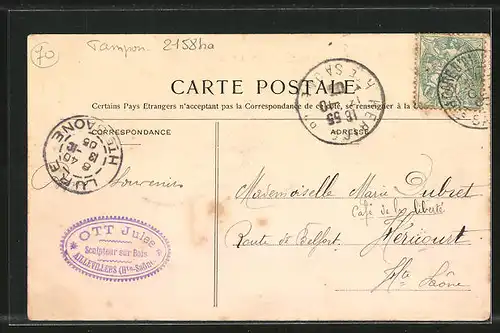 70
Tampon 2158ha
CARTE POSTALE
Certains Pays Etrangers n'acceptant pas la Correspondance de ce côté, se renseigner à la
CORRESPONDANCE
ADRESSE
LURE
HTE SAONE
8 40
13
05
HERICOURT
HTE SAONE
16 55
Souvenirs
Mademoiselle Marie Dubret
Café de la liberté
Route de Belfort,
Héricourt
Hte Saône
OTT Jules
Sculpteur sur Bois
AILLEVILLERS (Hte-Saône)